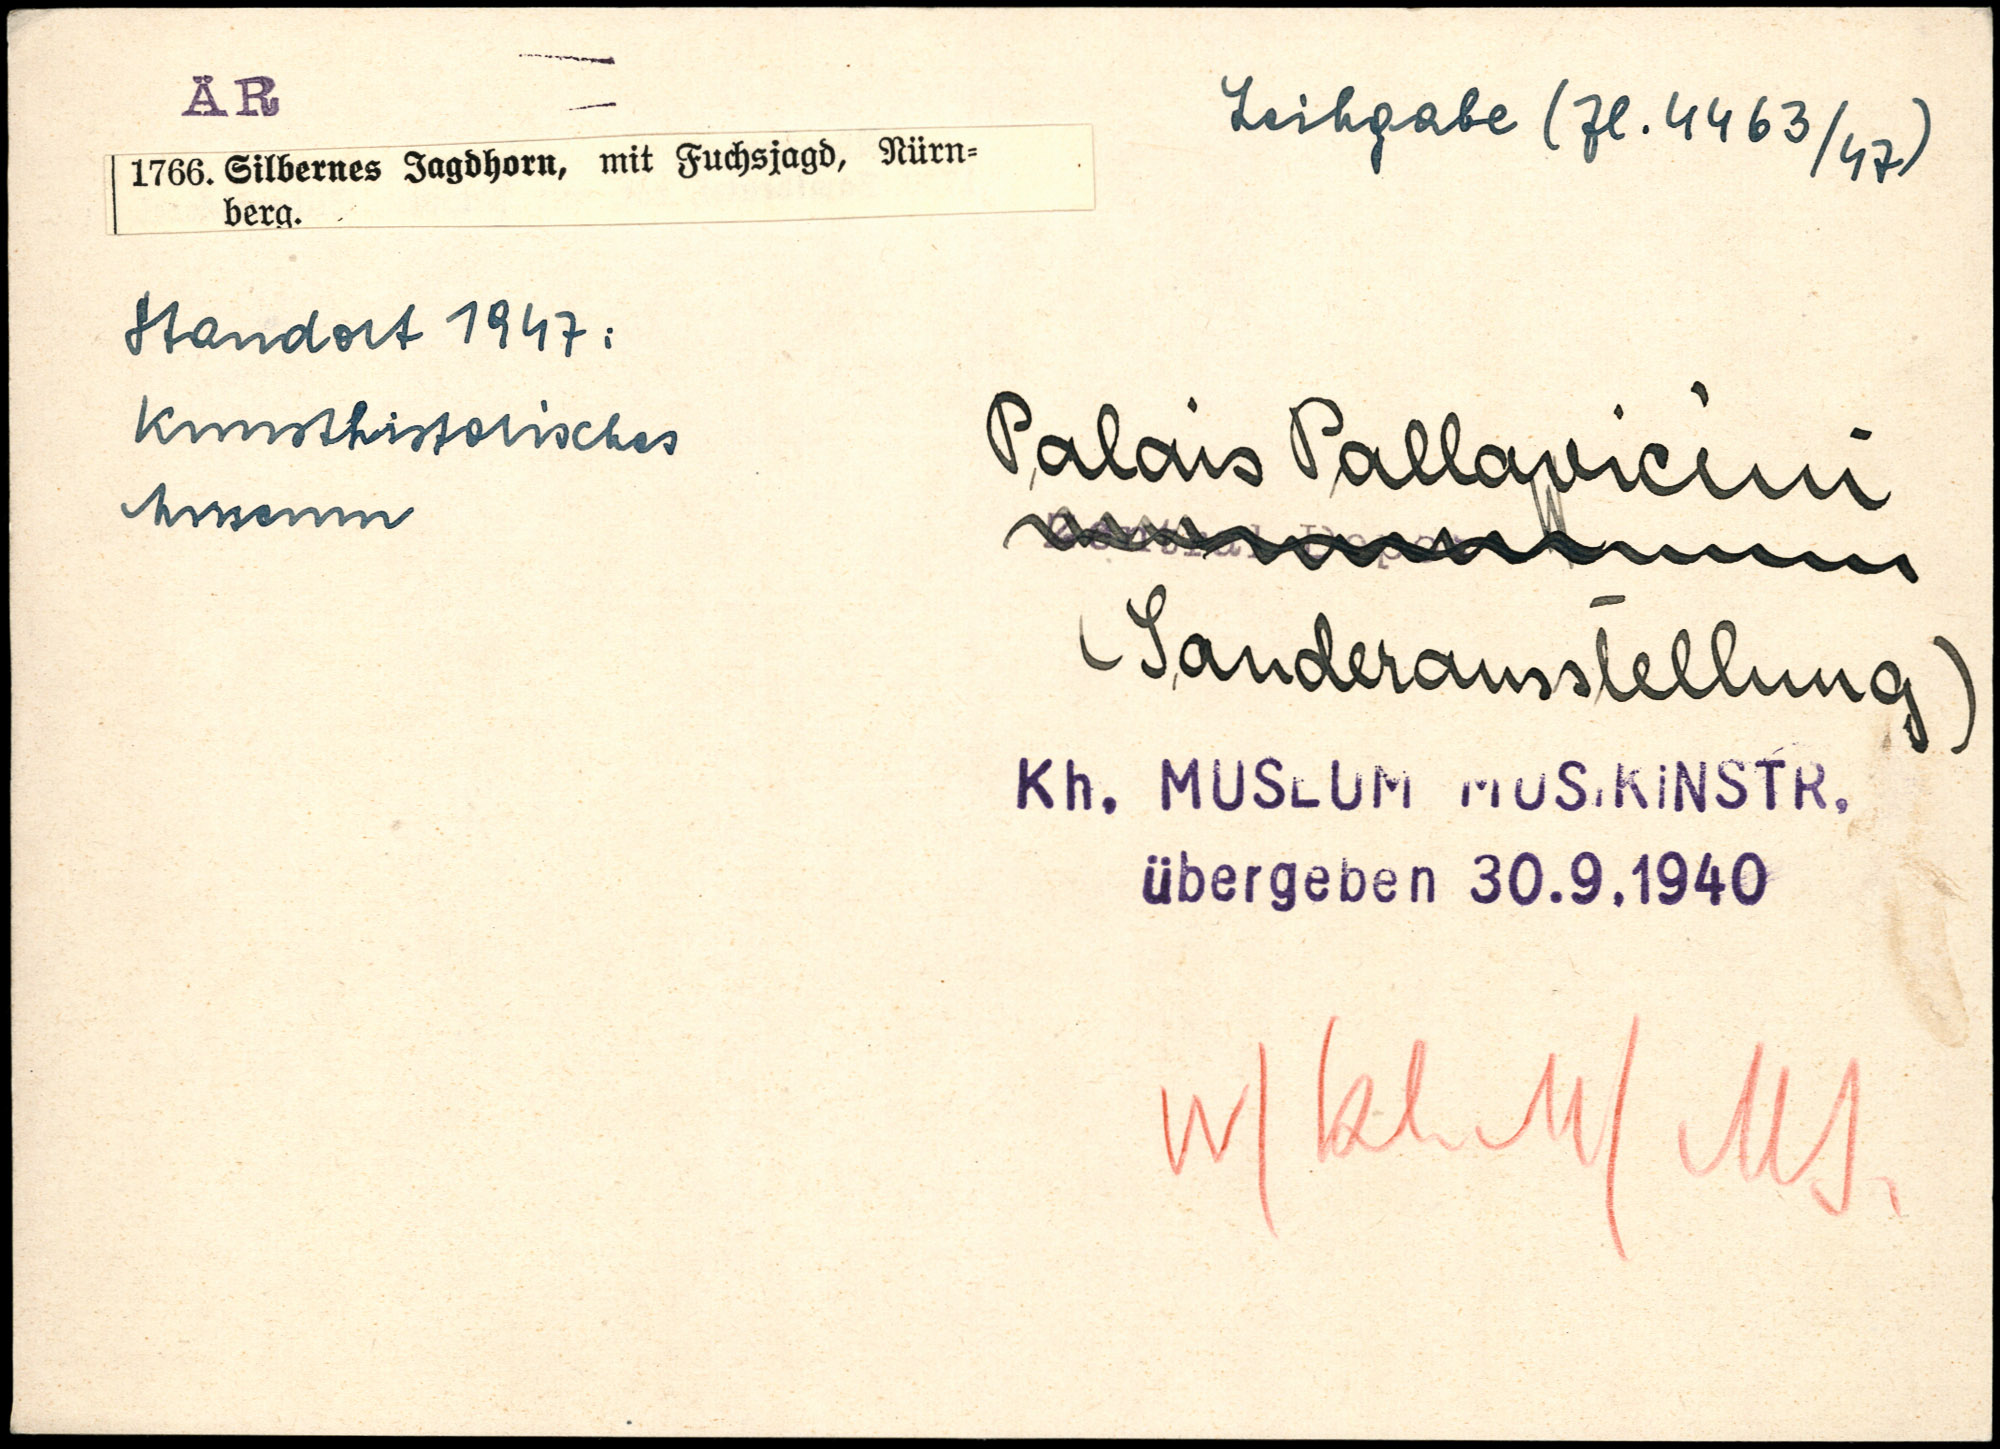 ÄR
Leihgabe (Zl. 4463/47)
1766. Silbernes Jagdhorn, mit Fuchsjagd, Nürn=
berg.
Standort 1947:
Kunsthistorisches
Museum
Palais Pallavicini
Zentral Depot
(Sonderausstellung)
Kh. MUSEUM MUSIKINSTR.
übergeben 30.9.1940
W/ kh. M/ MJ.